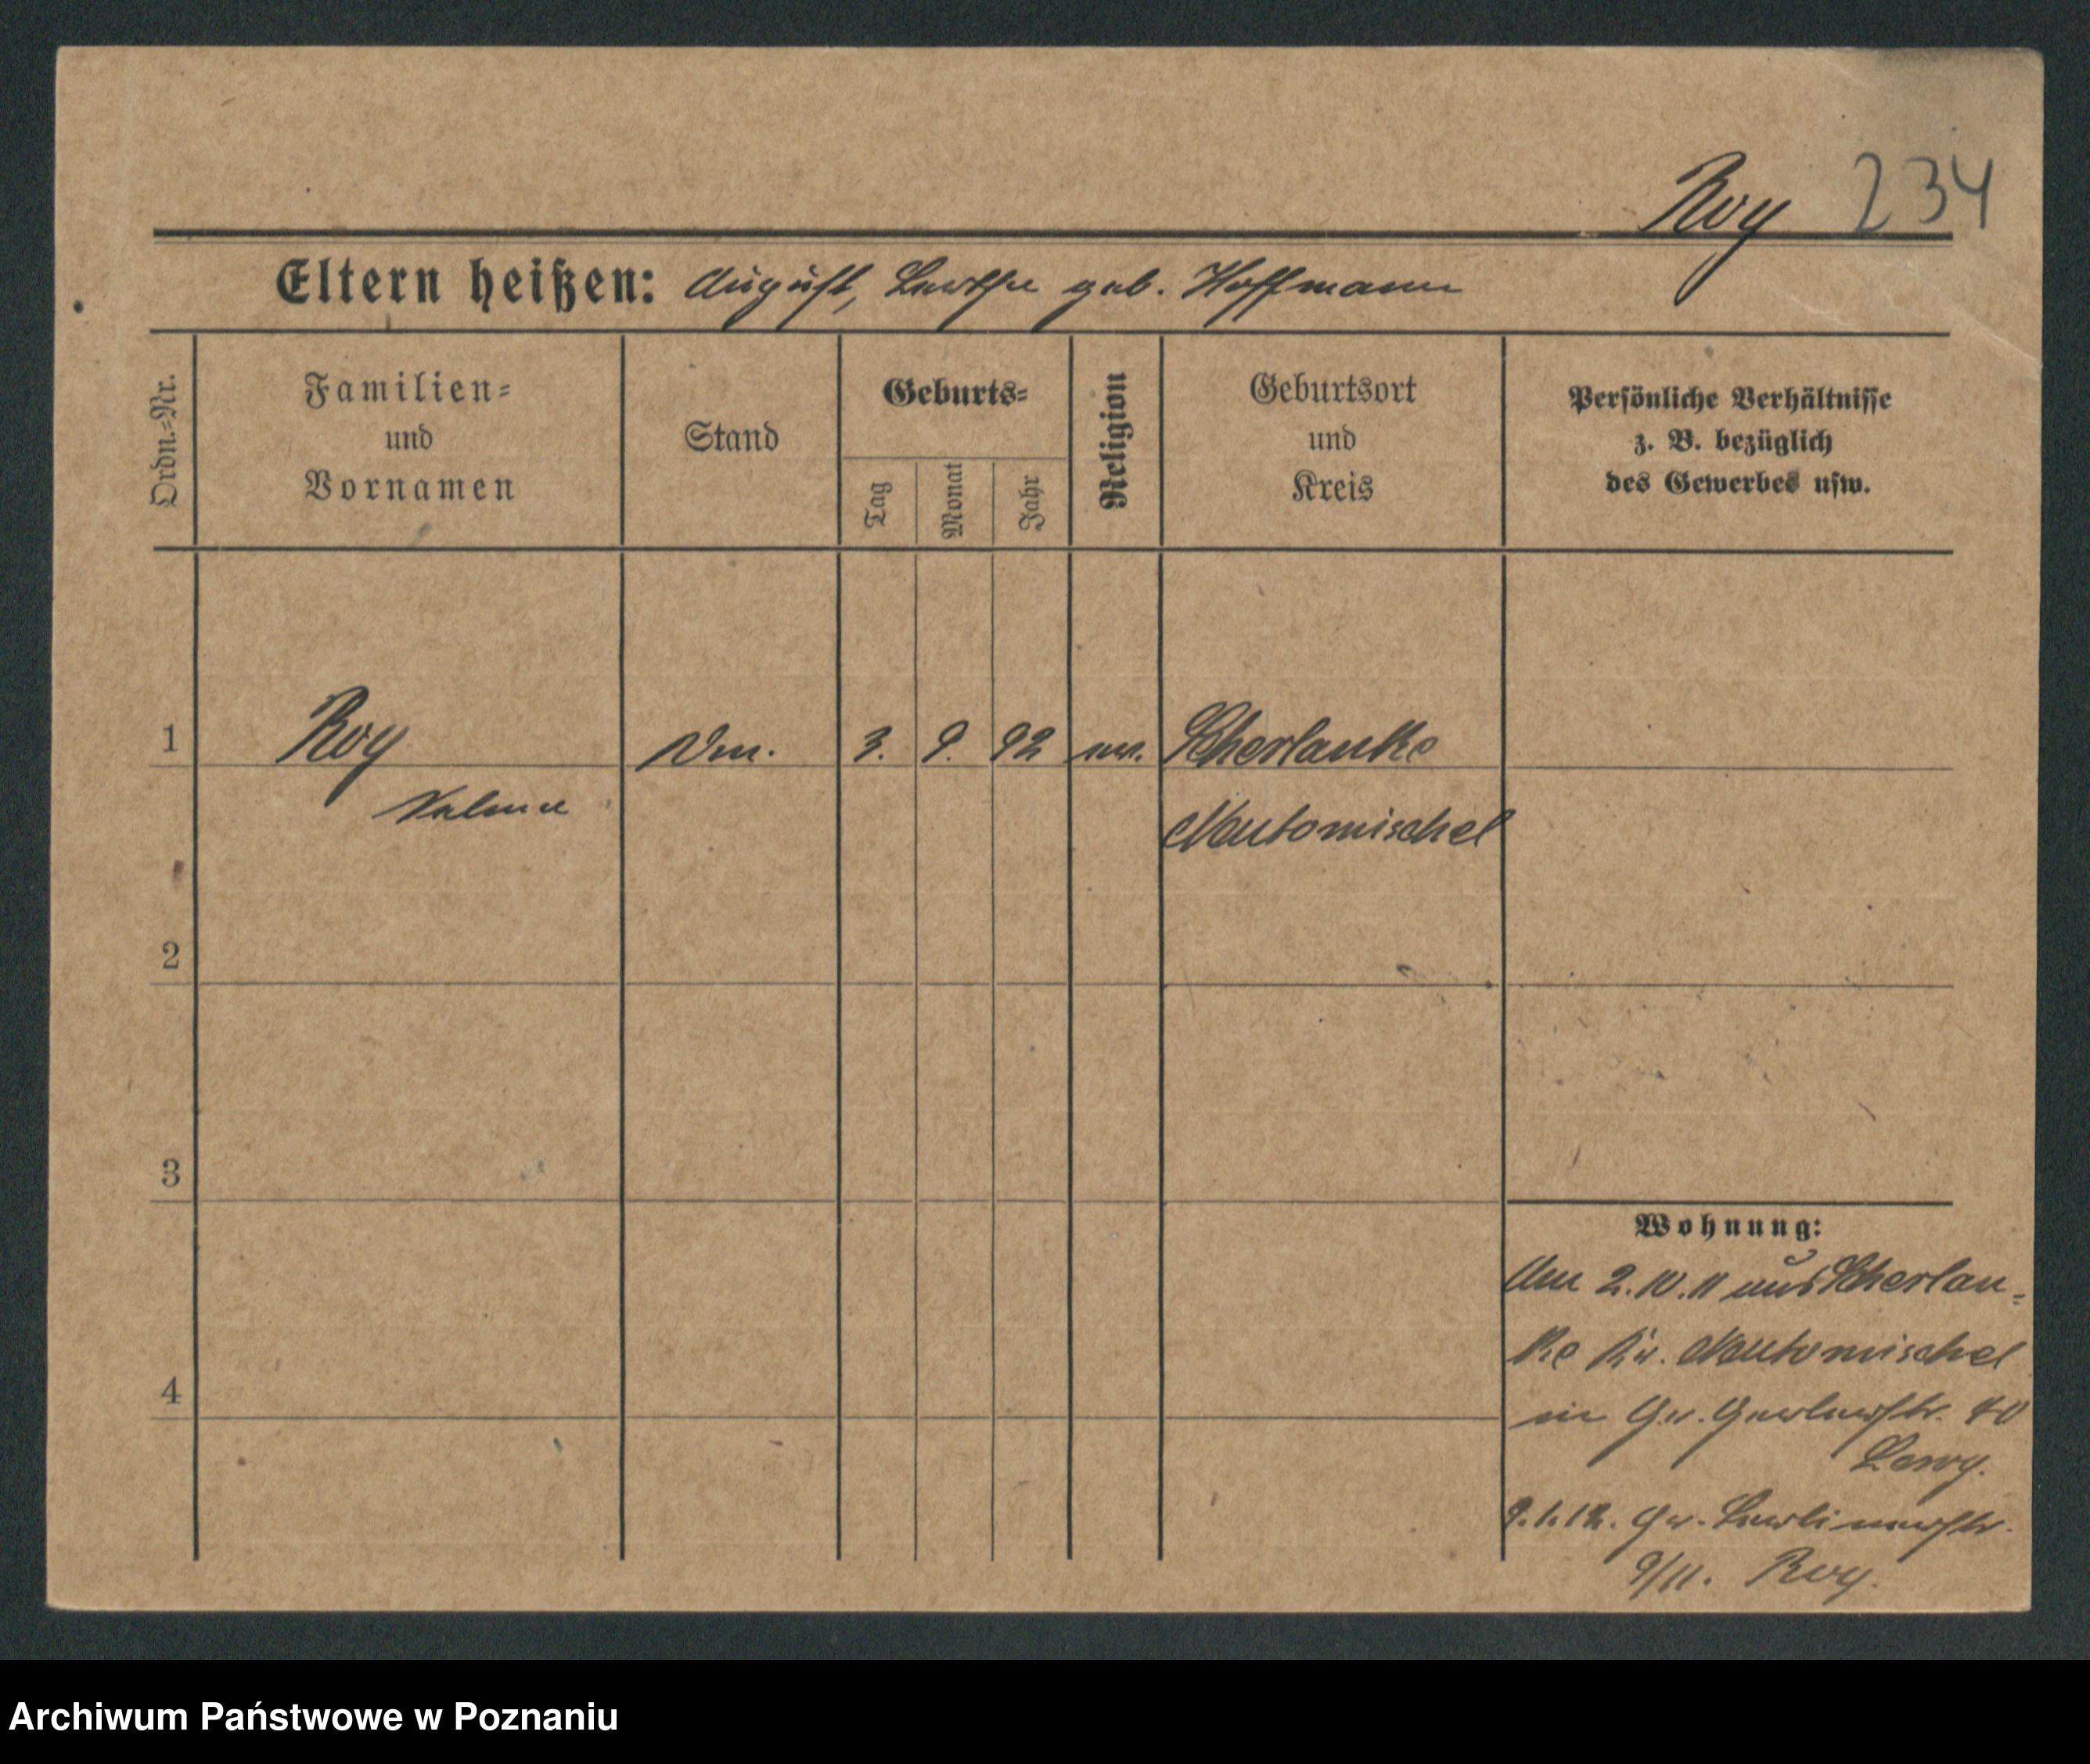 Roy 234
Eltern heißen: August, Berthe geb. Hoffmann
Ordn.=Nr.
Familien=
und
Vornamen
Stand
Geburts=
Tag
Monat
Jahr
Religion
Geburtsort
und
Kreis
Persönliche Verhältnisse
z. B. bezüglich
des Gewerbes usw.
1 Roy 3. 9. 92 ev. Scherlanke
Neutomischel
2
3
Wohnung:
Am 2.10.11 aus Scherlan=
ke Kr. Neutomischel
4
in Gr. 40
9.1.12. Gr. Berlinerstr.
9/11. Roy.
Archiwum Państwowe w Poznaniu